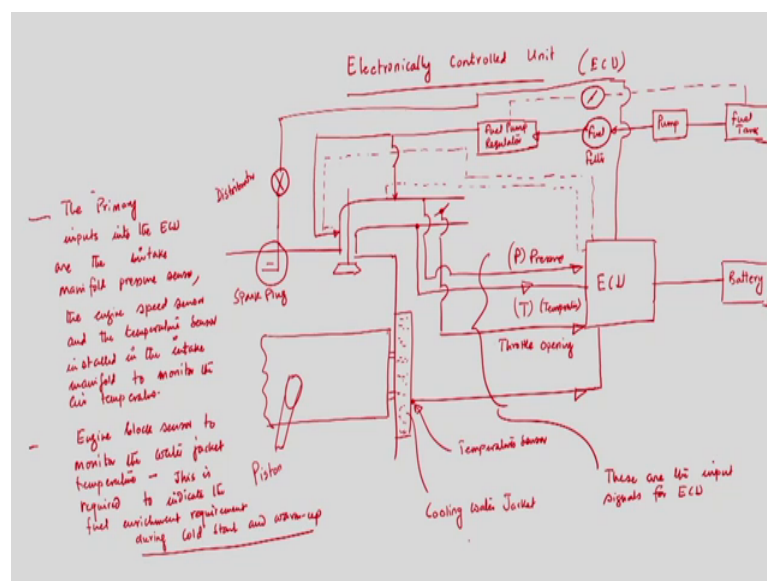 Electronically Controlled Unit (ECU)
Fuel Pump
Regulator
Fuel
Filter
Pump
Fuel
Tank
Distributor
Spark Plug
(P) Pressure
(T) (Temperature)
Throttle opening
ECU
Battery
Temperature Sensor
Cooling Water Jacket
Piston
These are the input
signals for ECU
— The Primary
inputs into the ECU
are the intake
manifold pressure sensor,
the engine speed sensor
and the temperature sensor
installed in the intake
manifold to monitor the
air temperature.
- Engine block sensor to
monitor the water jacket
temperature - This is
required to indicate the
fuel enrichment requirement
during cold start and warm-up